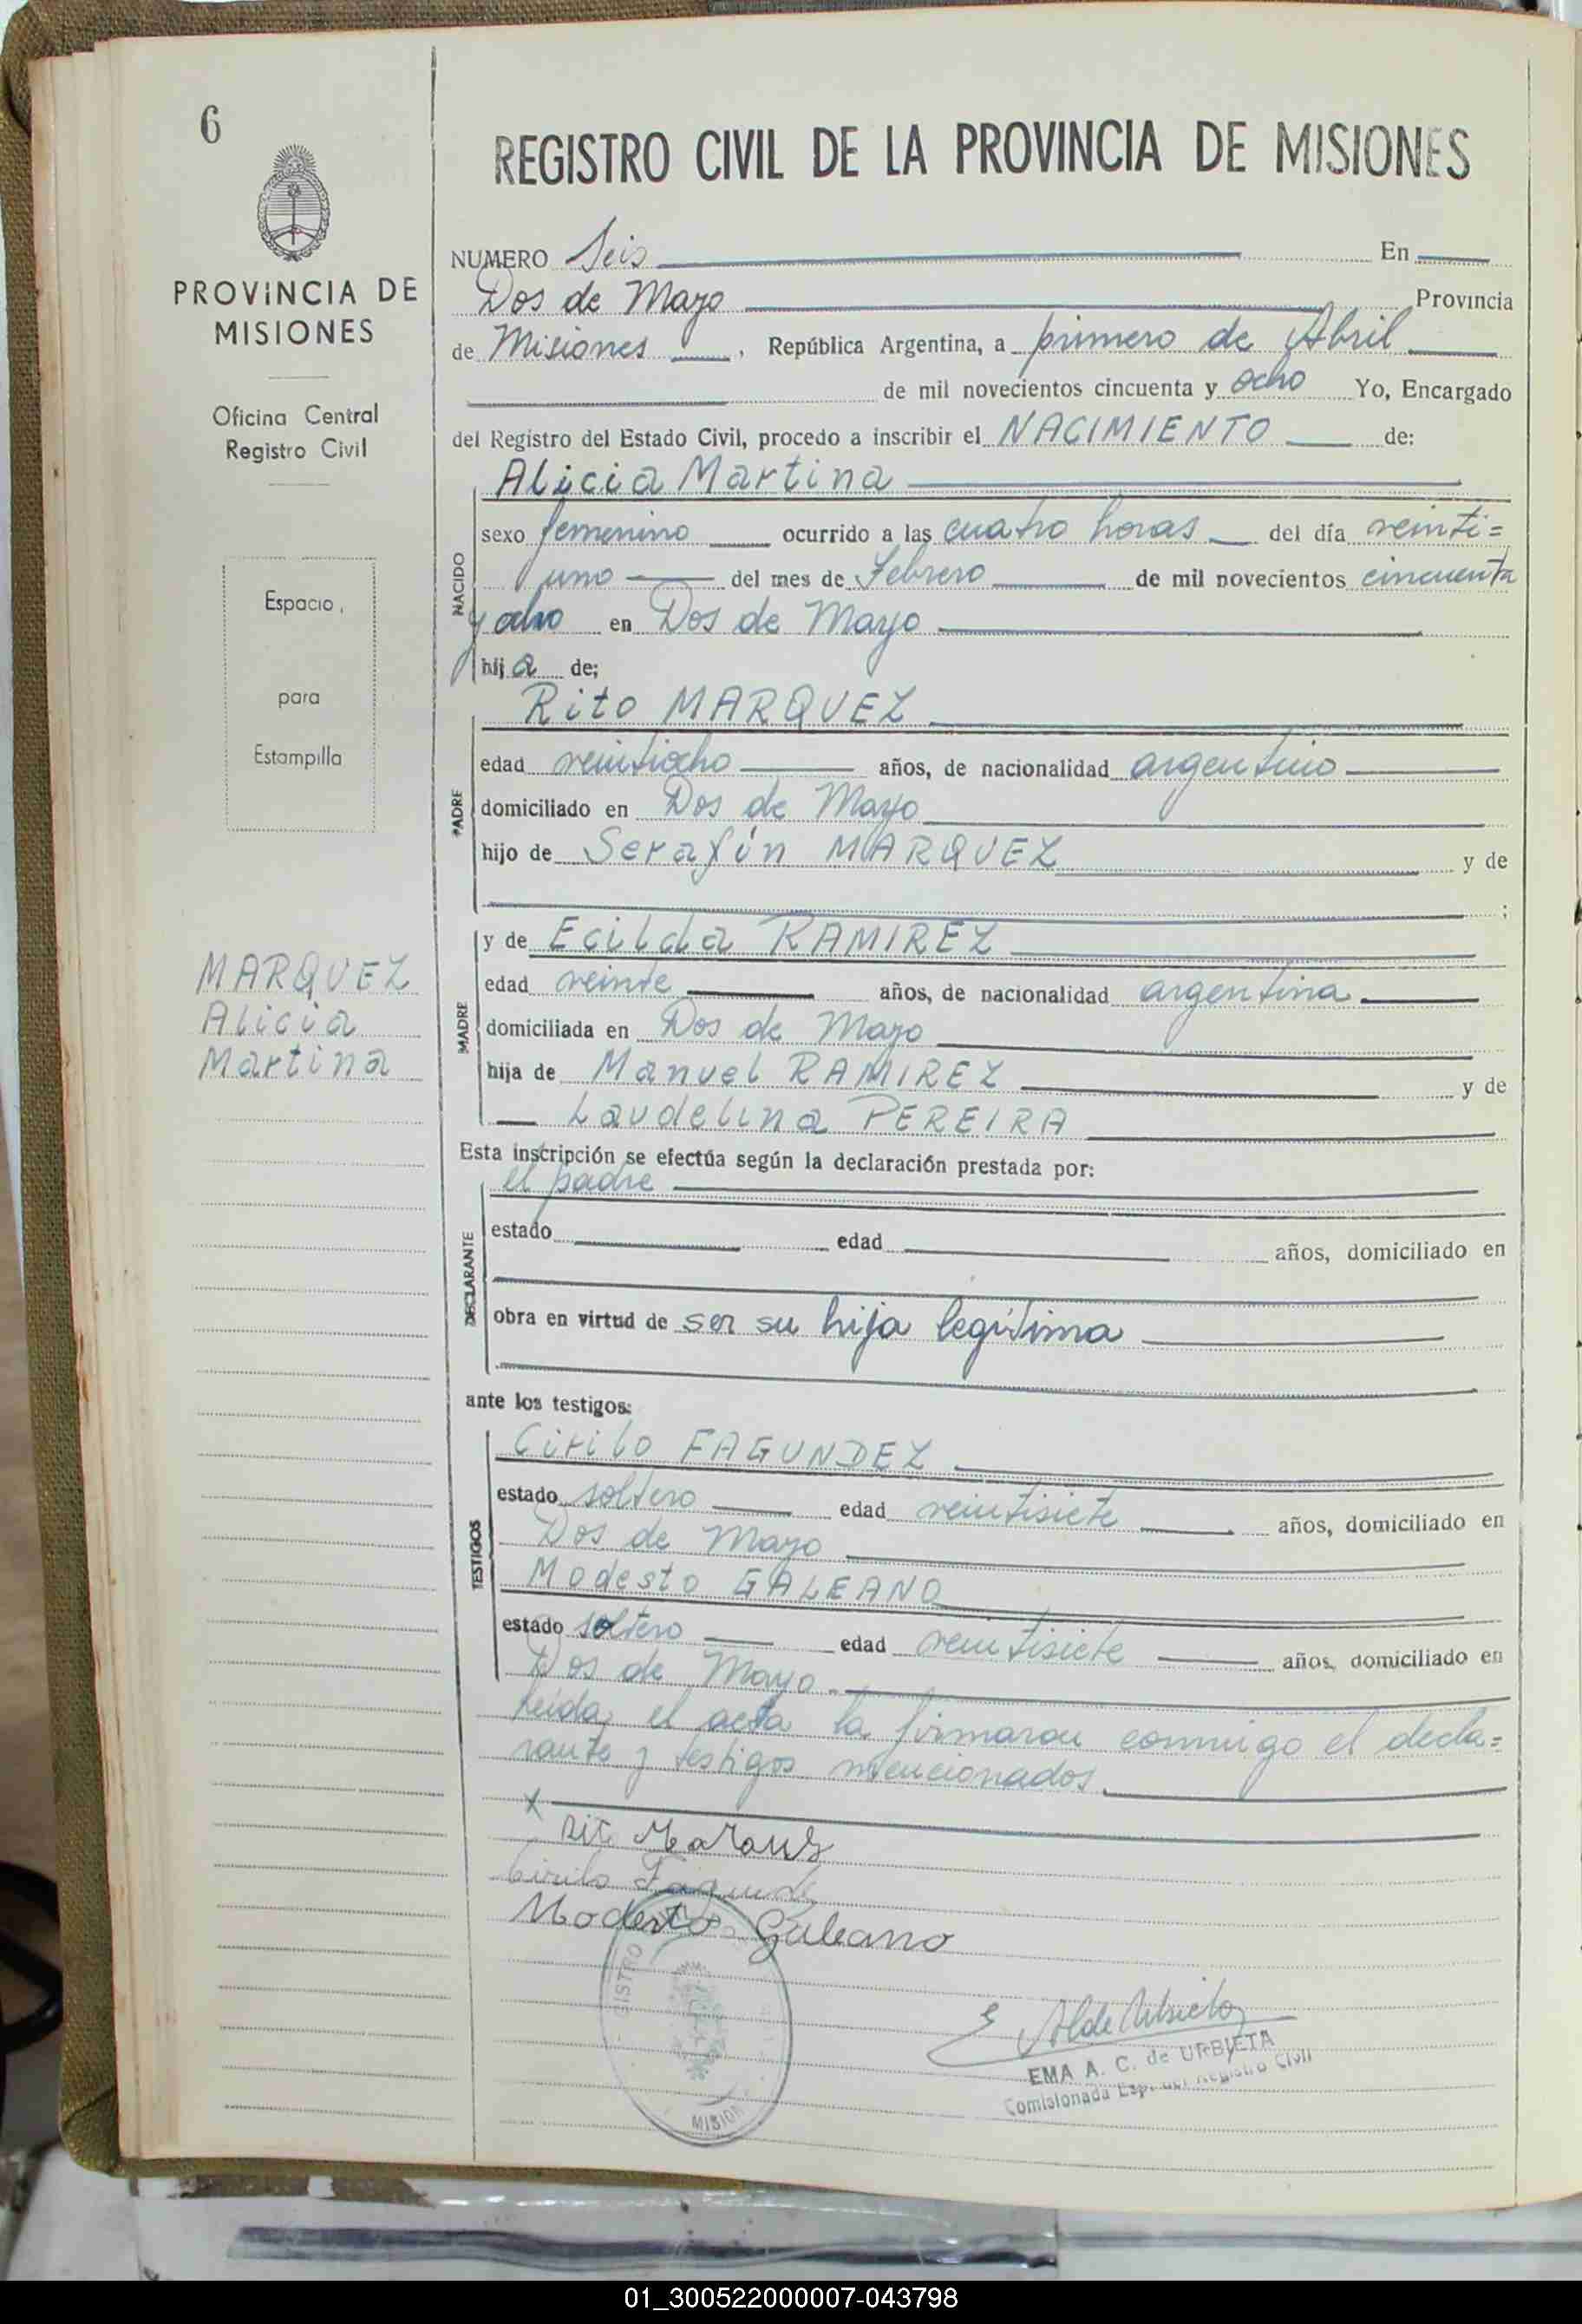 6
REGISTRO CIVIL DE LA PROVINCIA DE MISIONES
PROVINCIA DE
MISIONES
Oficina Central
Registro Civil
Espacio
para
Estampilla
MARQUEZ
Alicia
Martina
NUMERO Seis En
Dos de Mayo Provincia
de Misiones, República Argentina, a primero de Abril
de mil novecientos cincuenta y ocho Yo, Encargado
del Registro del Estado Civil, procedo a inscribir el NACIMIENTO de:
Alicia Martina
NACIDO
sexo femenino ocurrido a las cuatro horas del día veinti=
uno del mes de Febrero de mil novecientos cincuenta
y ocho en Dos de Mayo
hija de;
Rito MARQUEZ
PADRE
edad veintiocho años, de nacionalidad argentino
domiciliado en Dos de Mayo
hijo de Serafín MARQUEZ y de
;
y de Ecilda RAMIREZ
MADRE
edad veinte años, de nacionalidad argentina
domiciliada en Dos de Mayo
hija de Manuel RAMIREZ y de
Laudelina PEREIRA
Esta inscripción se efectúa según la declaración prestada por:
el padre
DECLARANTE
estado edad años, domiciliado en
obra en virtud de ser su hija legítima
ante los testigos:
Cirilo FAGUNDEZ
TESTIGOS
estado soltero edad veintisiete años, domiciliado en
Dos de Mayo
Modesto GALEANO
estado soltero edad veintisiete años, domiciliado en
Dos de Mayo
Leida el acta la firmaron conmigo el decla=
rante y testigos mencionados.
x
Rito Marquez
Cirilo Fagundez
Modesto Galeano
EMA A. C. de URBIETA
Comisionada Esp. del Registro Civil
01_300522000007-043798